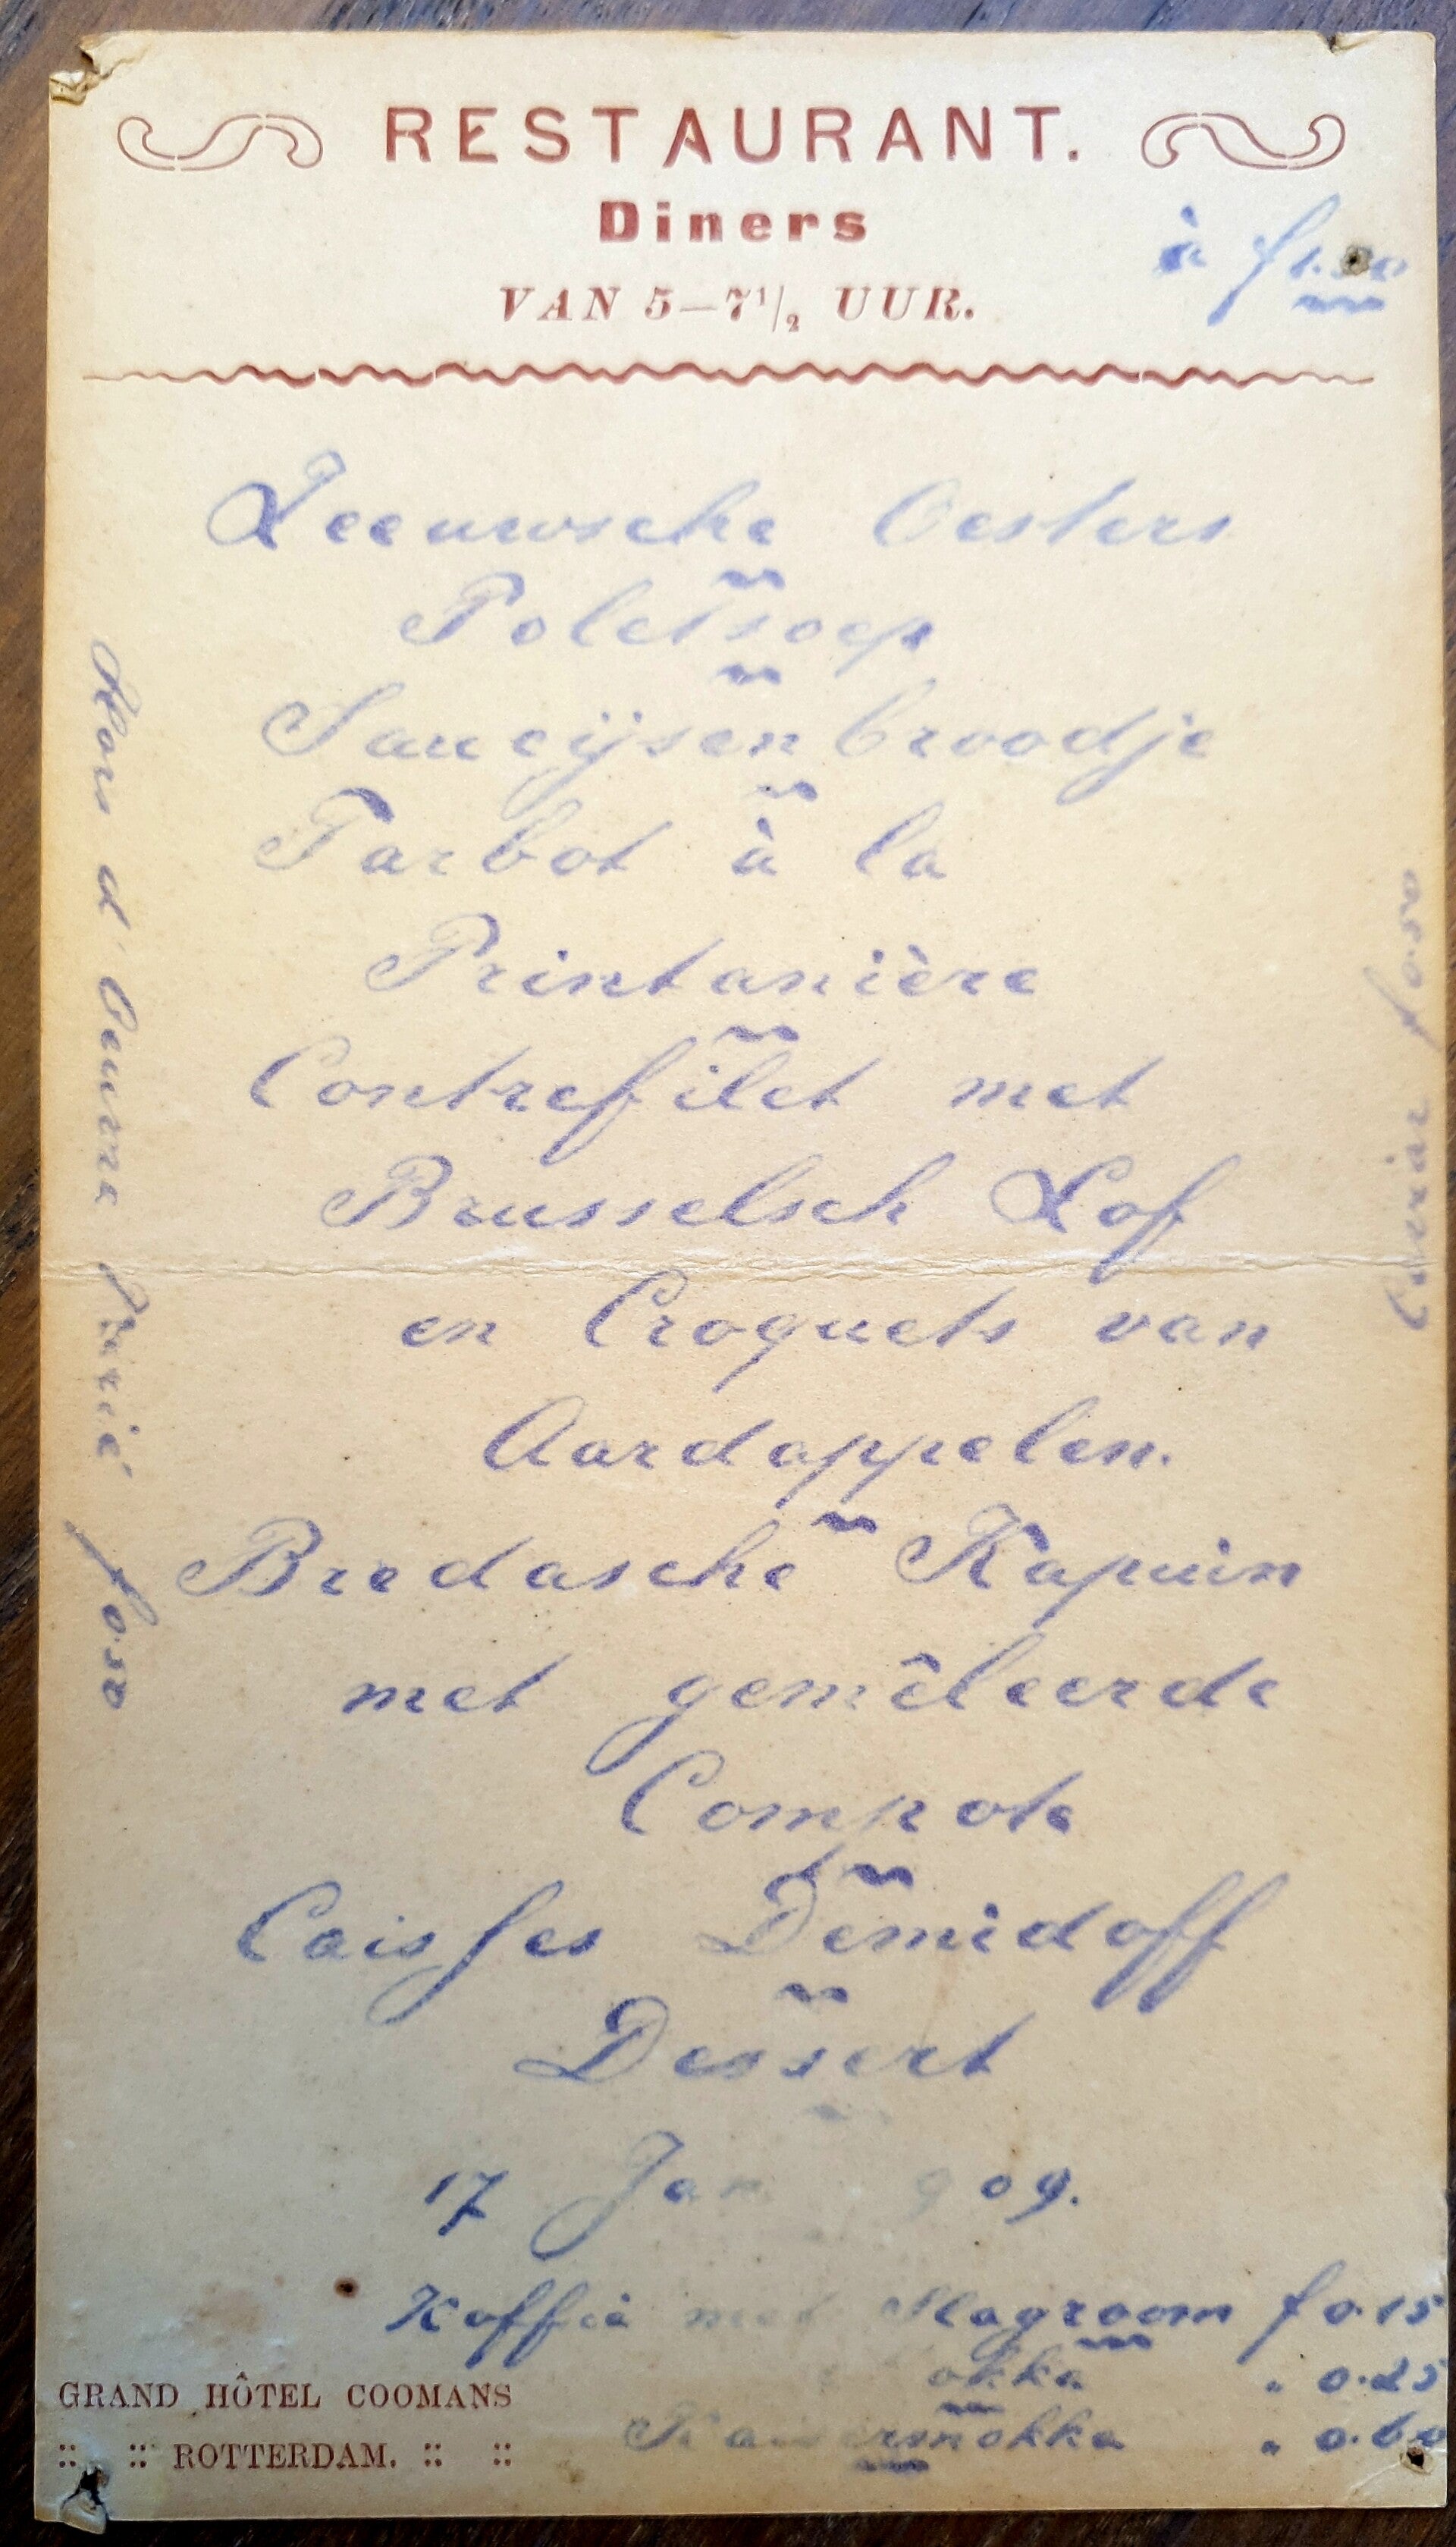 RESTAURANT.
Diners
VAN 5–7 1/2 UUR.
à f 1.50
Zeeuwsche Oesters
Poletsoep
Saucijsenbroodje
Tarbot à la
Printanière
Contrefilet met
Brusselsch Lof
en Croquets van
Aardappelen.
Bredasche Kapuin
met gemêleerde
Compote
Caisses Demidoff
Dessert
17 Jan 909.
Koffie met Slagroom f 0.15
" 0.25
" 0.60
Hors d'Oeuvre Varié f 0.50
Caviar f 0.50
GRAND HÔTEL COOMANS
:: :: ROTTERDAM. :: ::